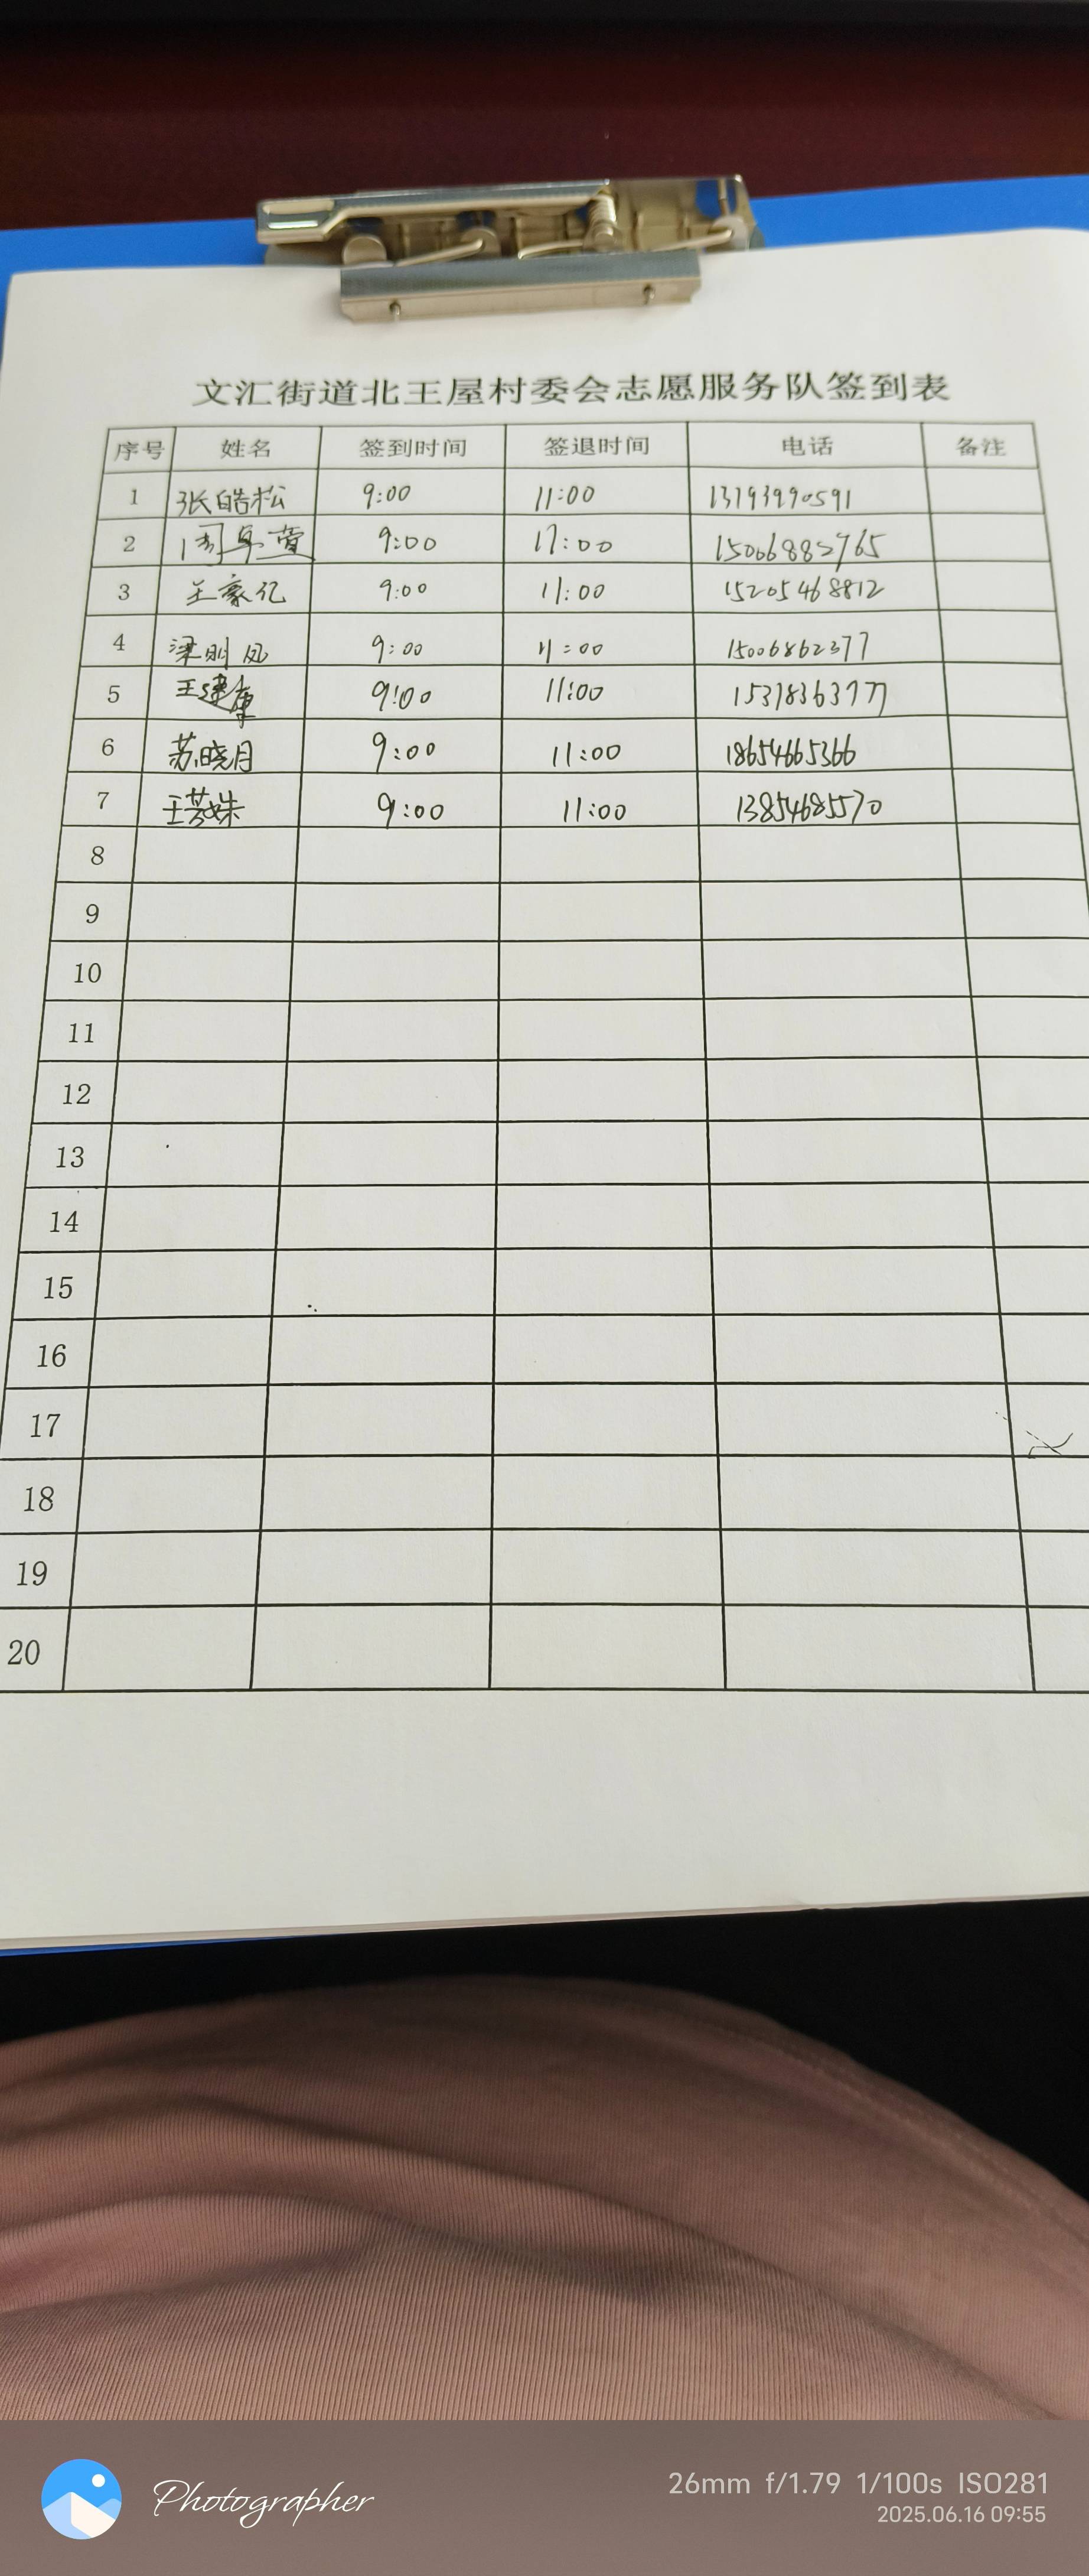 文汇街道北王屋村委会志愿服务队签到表
序号 姓名 签到时间 签退时间 电话 备注
1 张皓松 9:00 11:00 13793990591
2 周卓萱 9:00 17:00 15006882765
3 王豪亿 9:00 11:00 15205468812
4 梁明凤 9:00 11:00 15006862377
5 王建康 9:00 11:00 15378363777
6 苏晓月 9:00 11:00 18654665366
7 王芸姝 9:00 11:00 13854685570
8
9
10
11
12
13
14
15
16
17
18
19
20
Photographer
26mm f/1.79 1/100s ISO281
2025.06.16 09:55